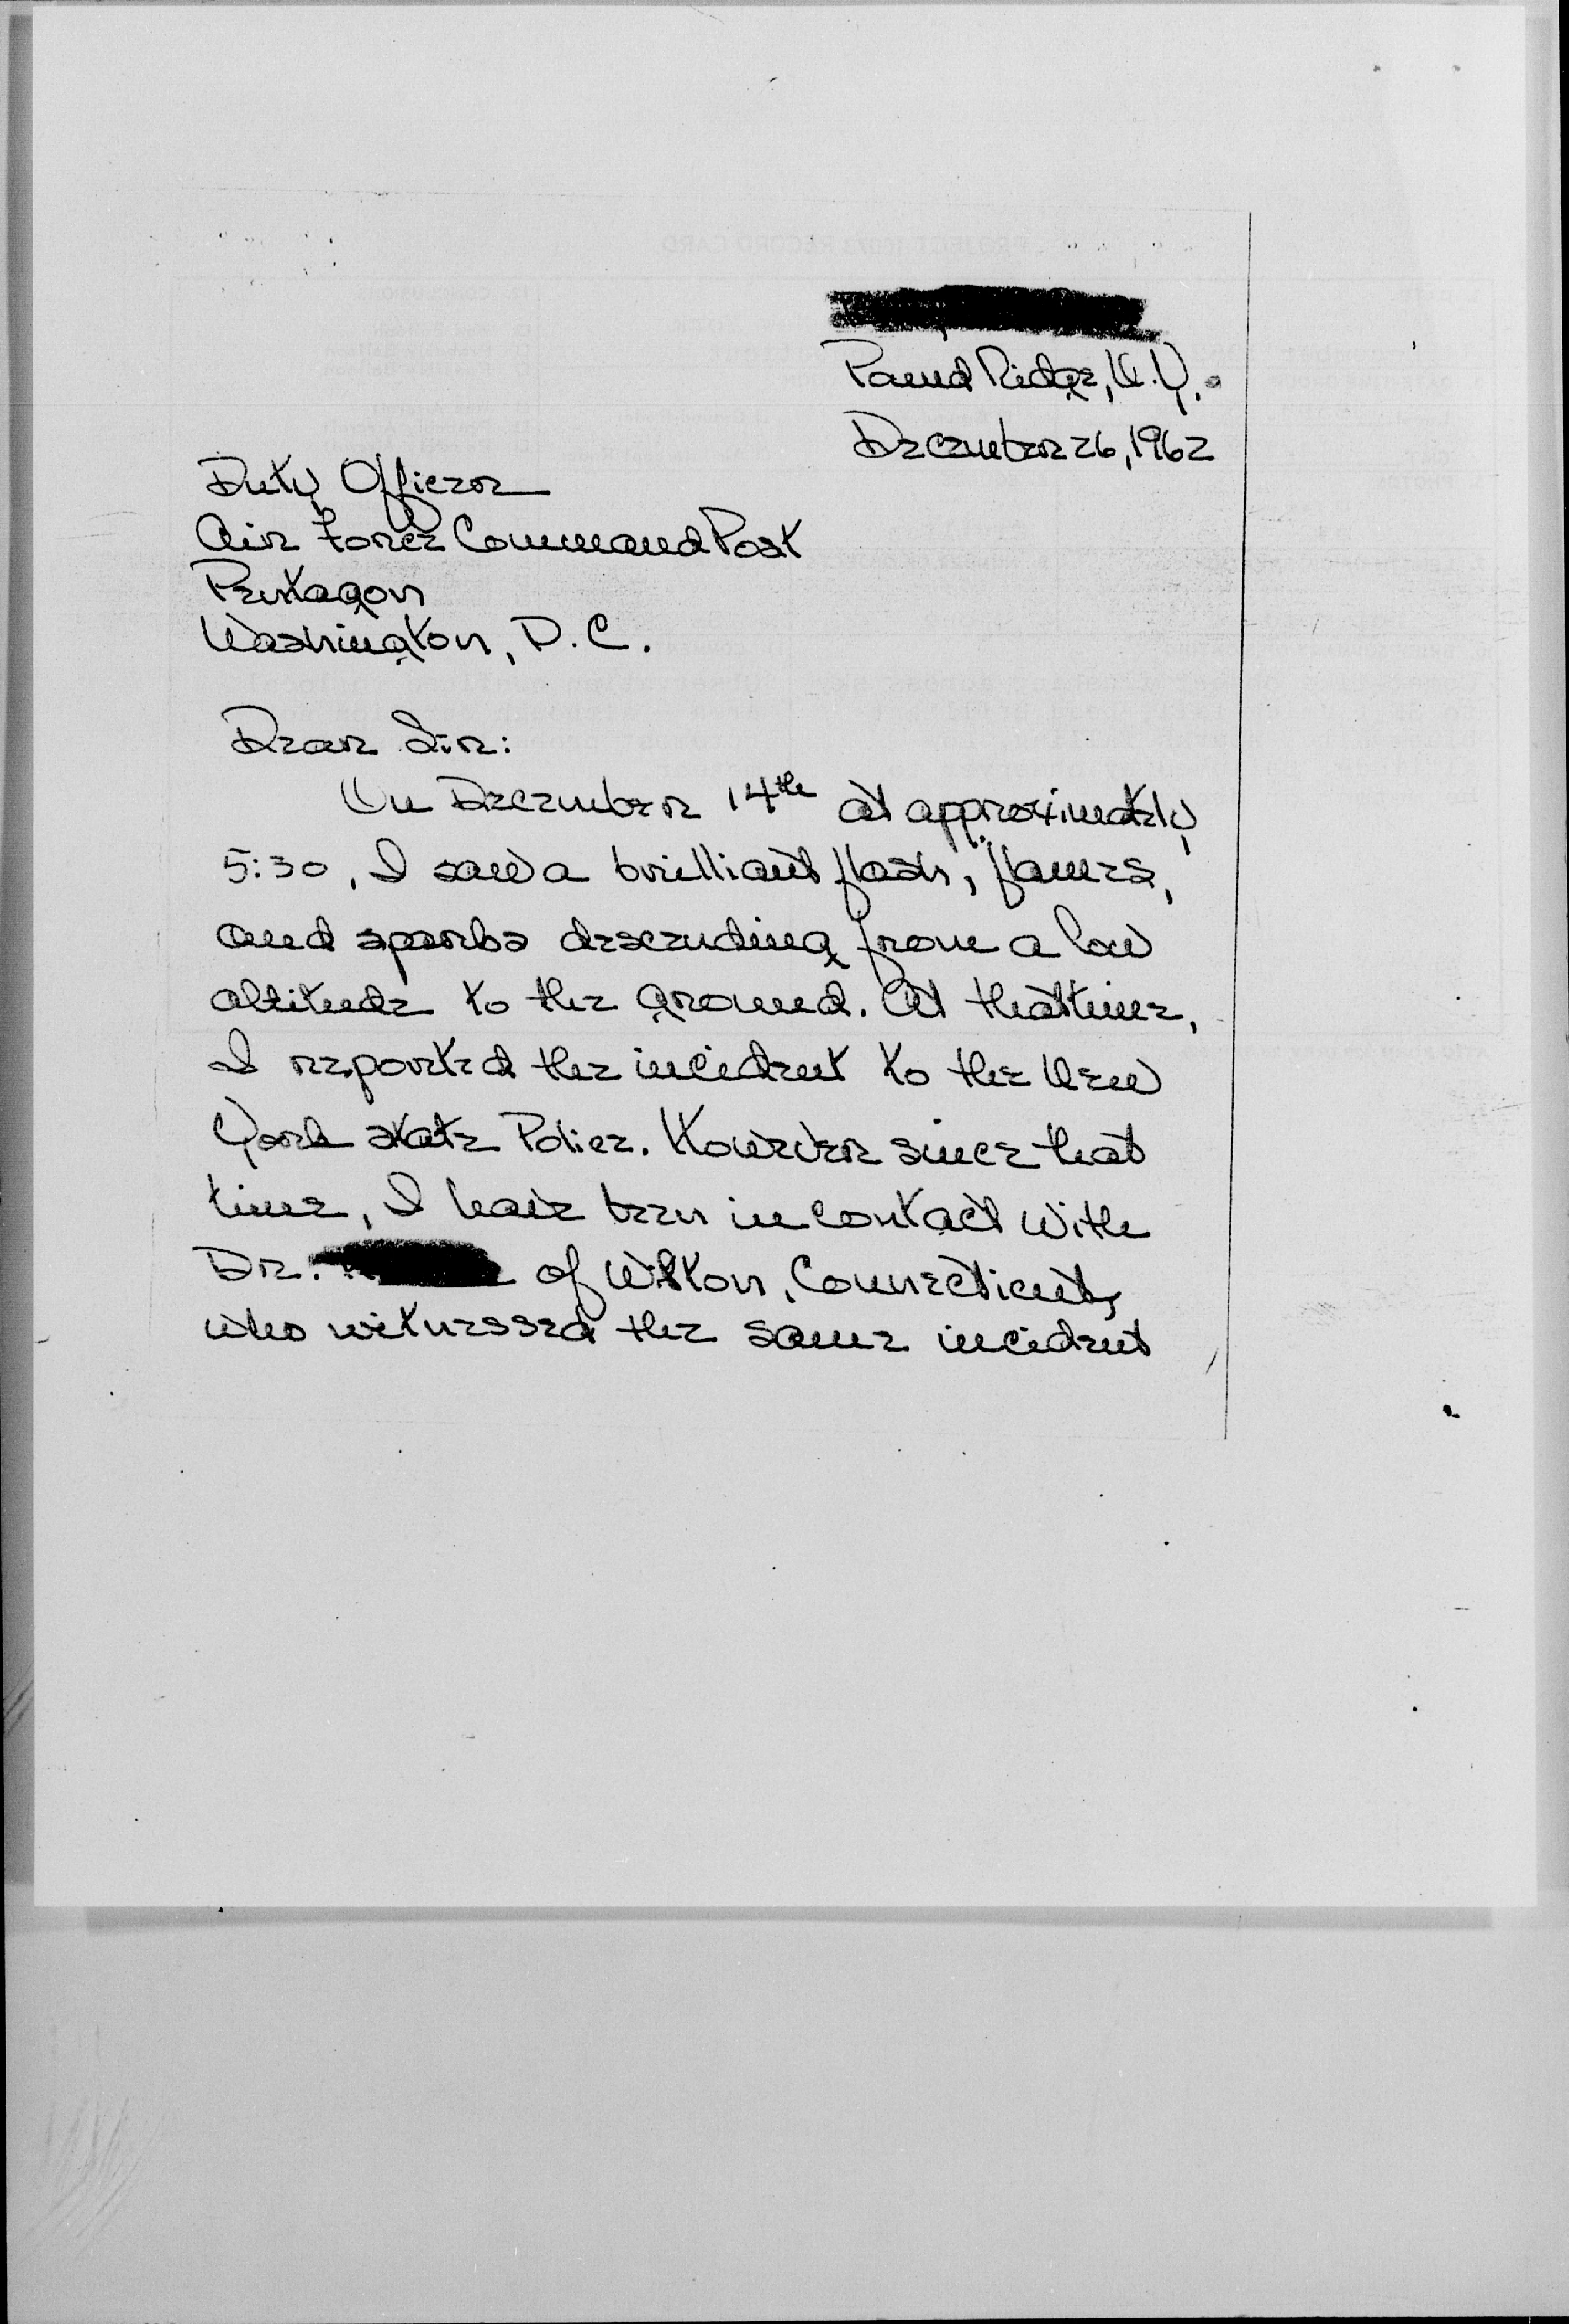 Pound Ridge, N.Y.
December 26, 1962
Duty Officer
Air Force Command Post
Pentagon
Washington, D.C.
Dear Sir:
On December 14th at approximately
5:30, I saw a brilliant flash, flames,
and sparks descending from a low
altitude to the ground. At that time,
I reported the incident to the New
York state Police. However since that
time, I have been in contact with
Dr. of Wilton, Connecticut,
who witnessed the same incident